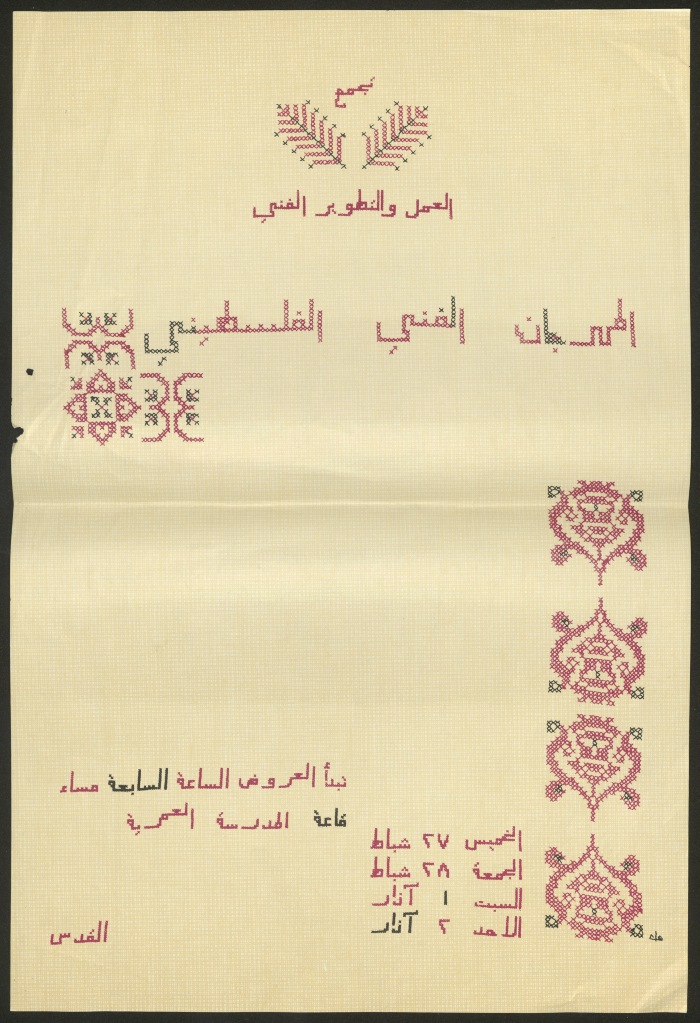 تجمع
العمل والتطوير الفني
المهرجان الفني الفلسطيني
تبدأ العروض الساعة السابعة مساء
قاعة المدرسة العمرية
الخميس ٢٧ شباط
الجمعة ٢٨ شباط
السبت ١ آذار
الاحد ٢ آذار
القدس